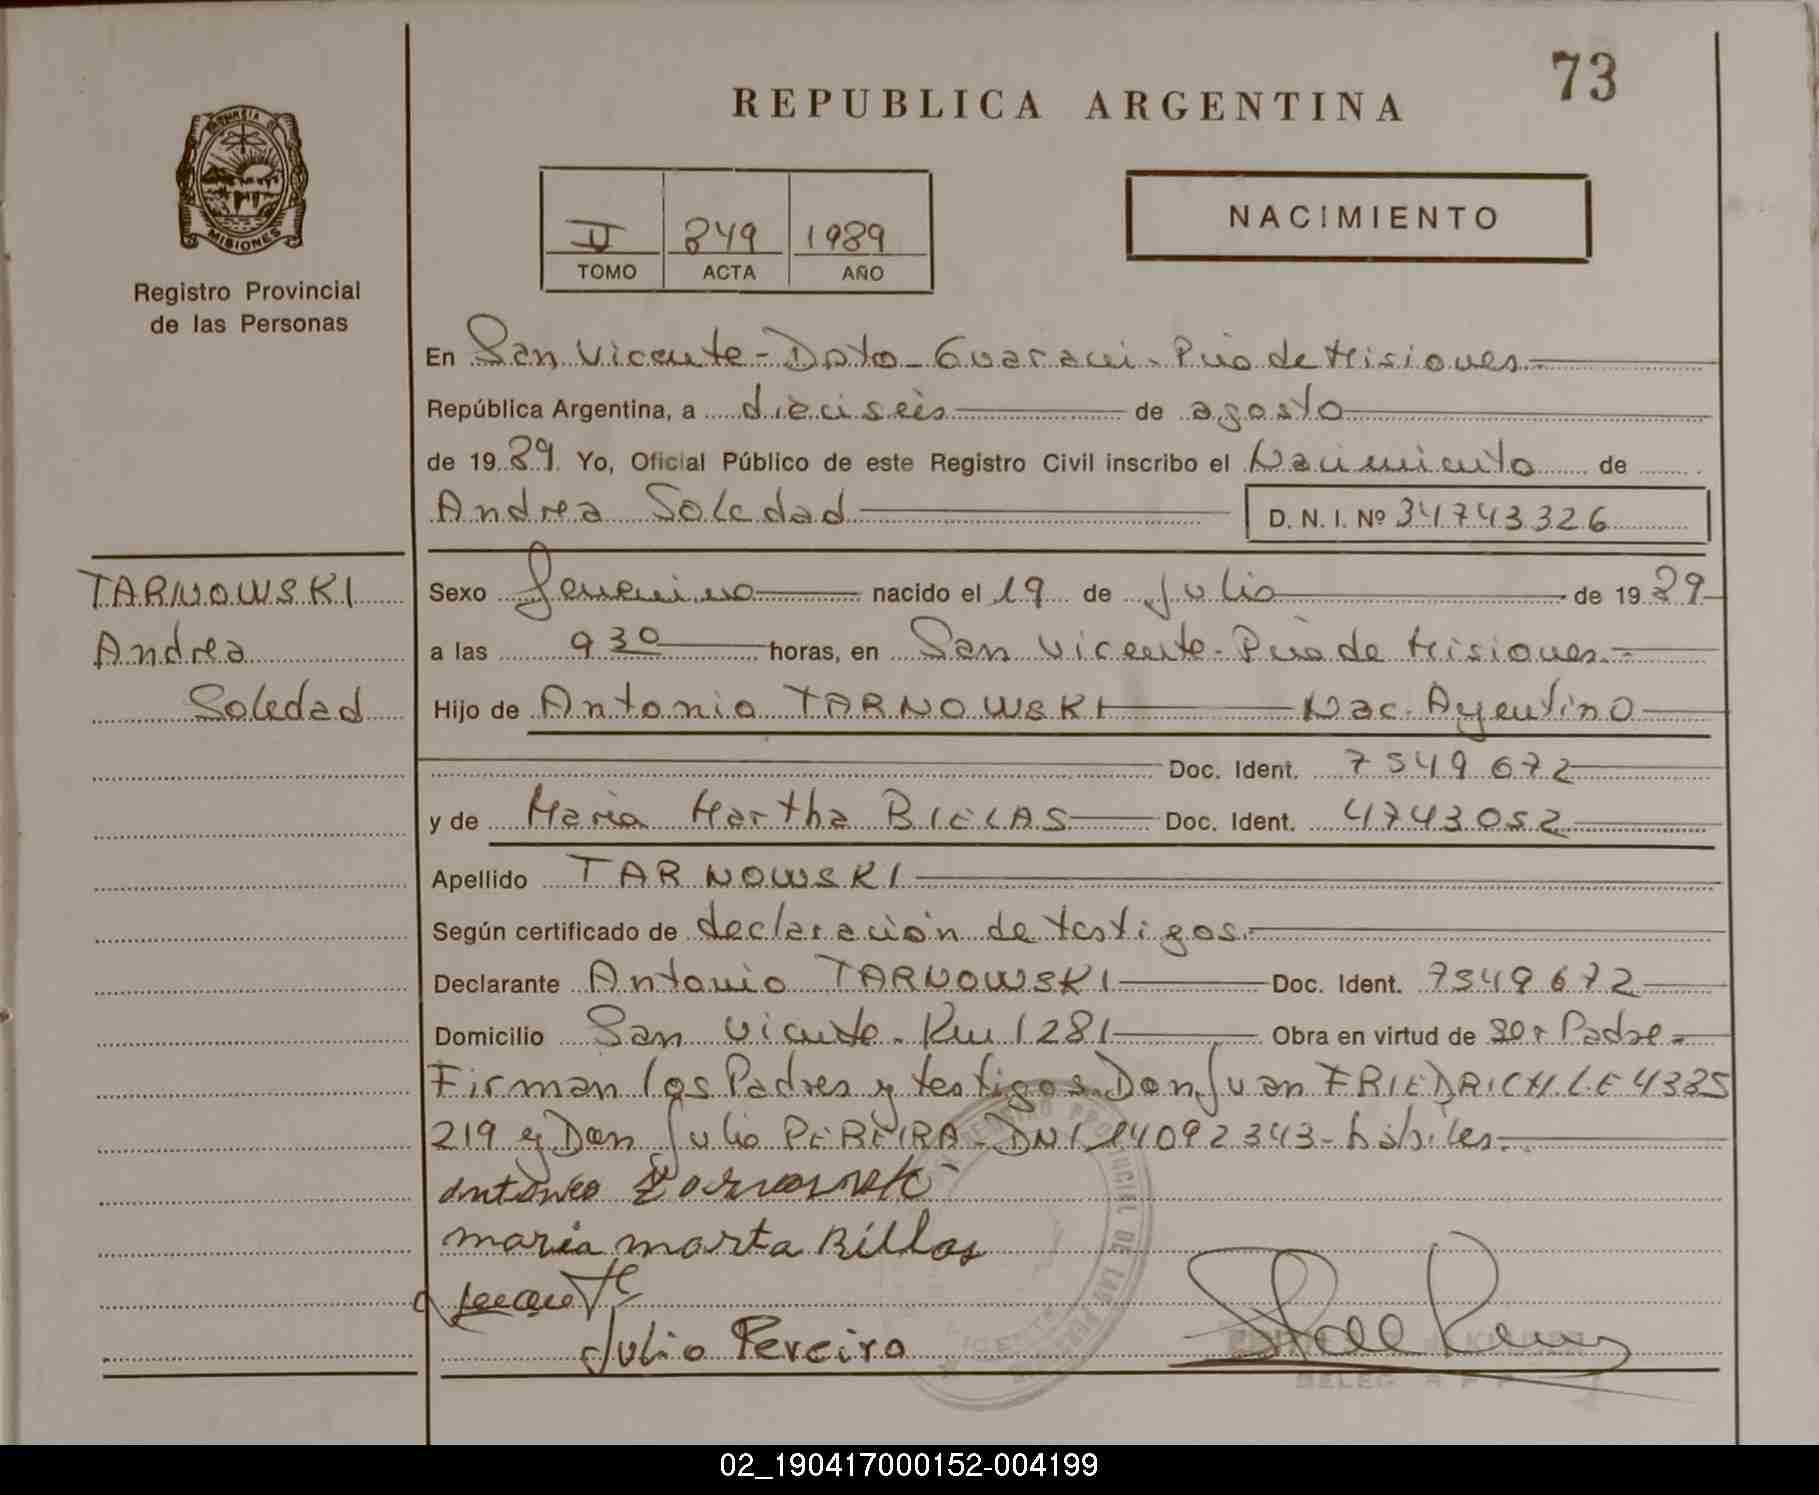 73
REPUBLICA ARGENTINA
NACIMIENTO
II 849 1989
TOMO ACTA AÑO
MISIONES
Registro Provincial
de las Personas
En San Vicente - Dpto - Guarani - Pcia de Misiones.-
República Argentina, a dieciseis de agosto
de 1989. Yo, Oficial Público de este Registro Civil inscribo el Nacimiento de
Andrea Soledad D. N. I. Nº 34743326
TARNOWSKI
Andrea
Soledad
Sexo femenino nacido el 19 de Julio de 1989
a las 9 30 horas, en San Vicente - Pcia de Misiones.-
Hijo de Antonio TARNOWSKI Nac. Argentino
Doc. Ident. 7549672
y de Maria Martha BIELAS Doc. Ident. 4743052
Apellido TARNOWSKI
Según certificado de declaración de testigos.-
Declarante Antonio TARNOWSKI Doc. Ident. 7549672
Domicilio San Vicente - Km 1281 Obra en virtud de ser Padre -
Firman los Padres y testigos Don Juan FRIEDRICH L E 4335
219 y Don Julio PEREIRA - DNI 14092343 - hábiles.-
maria marta Billas
Julio Pereira
02_190417000152-004199